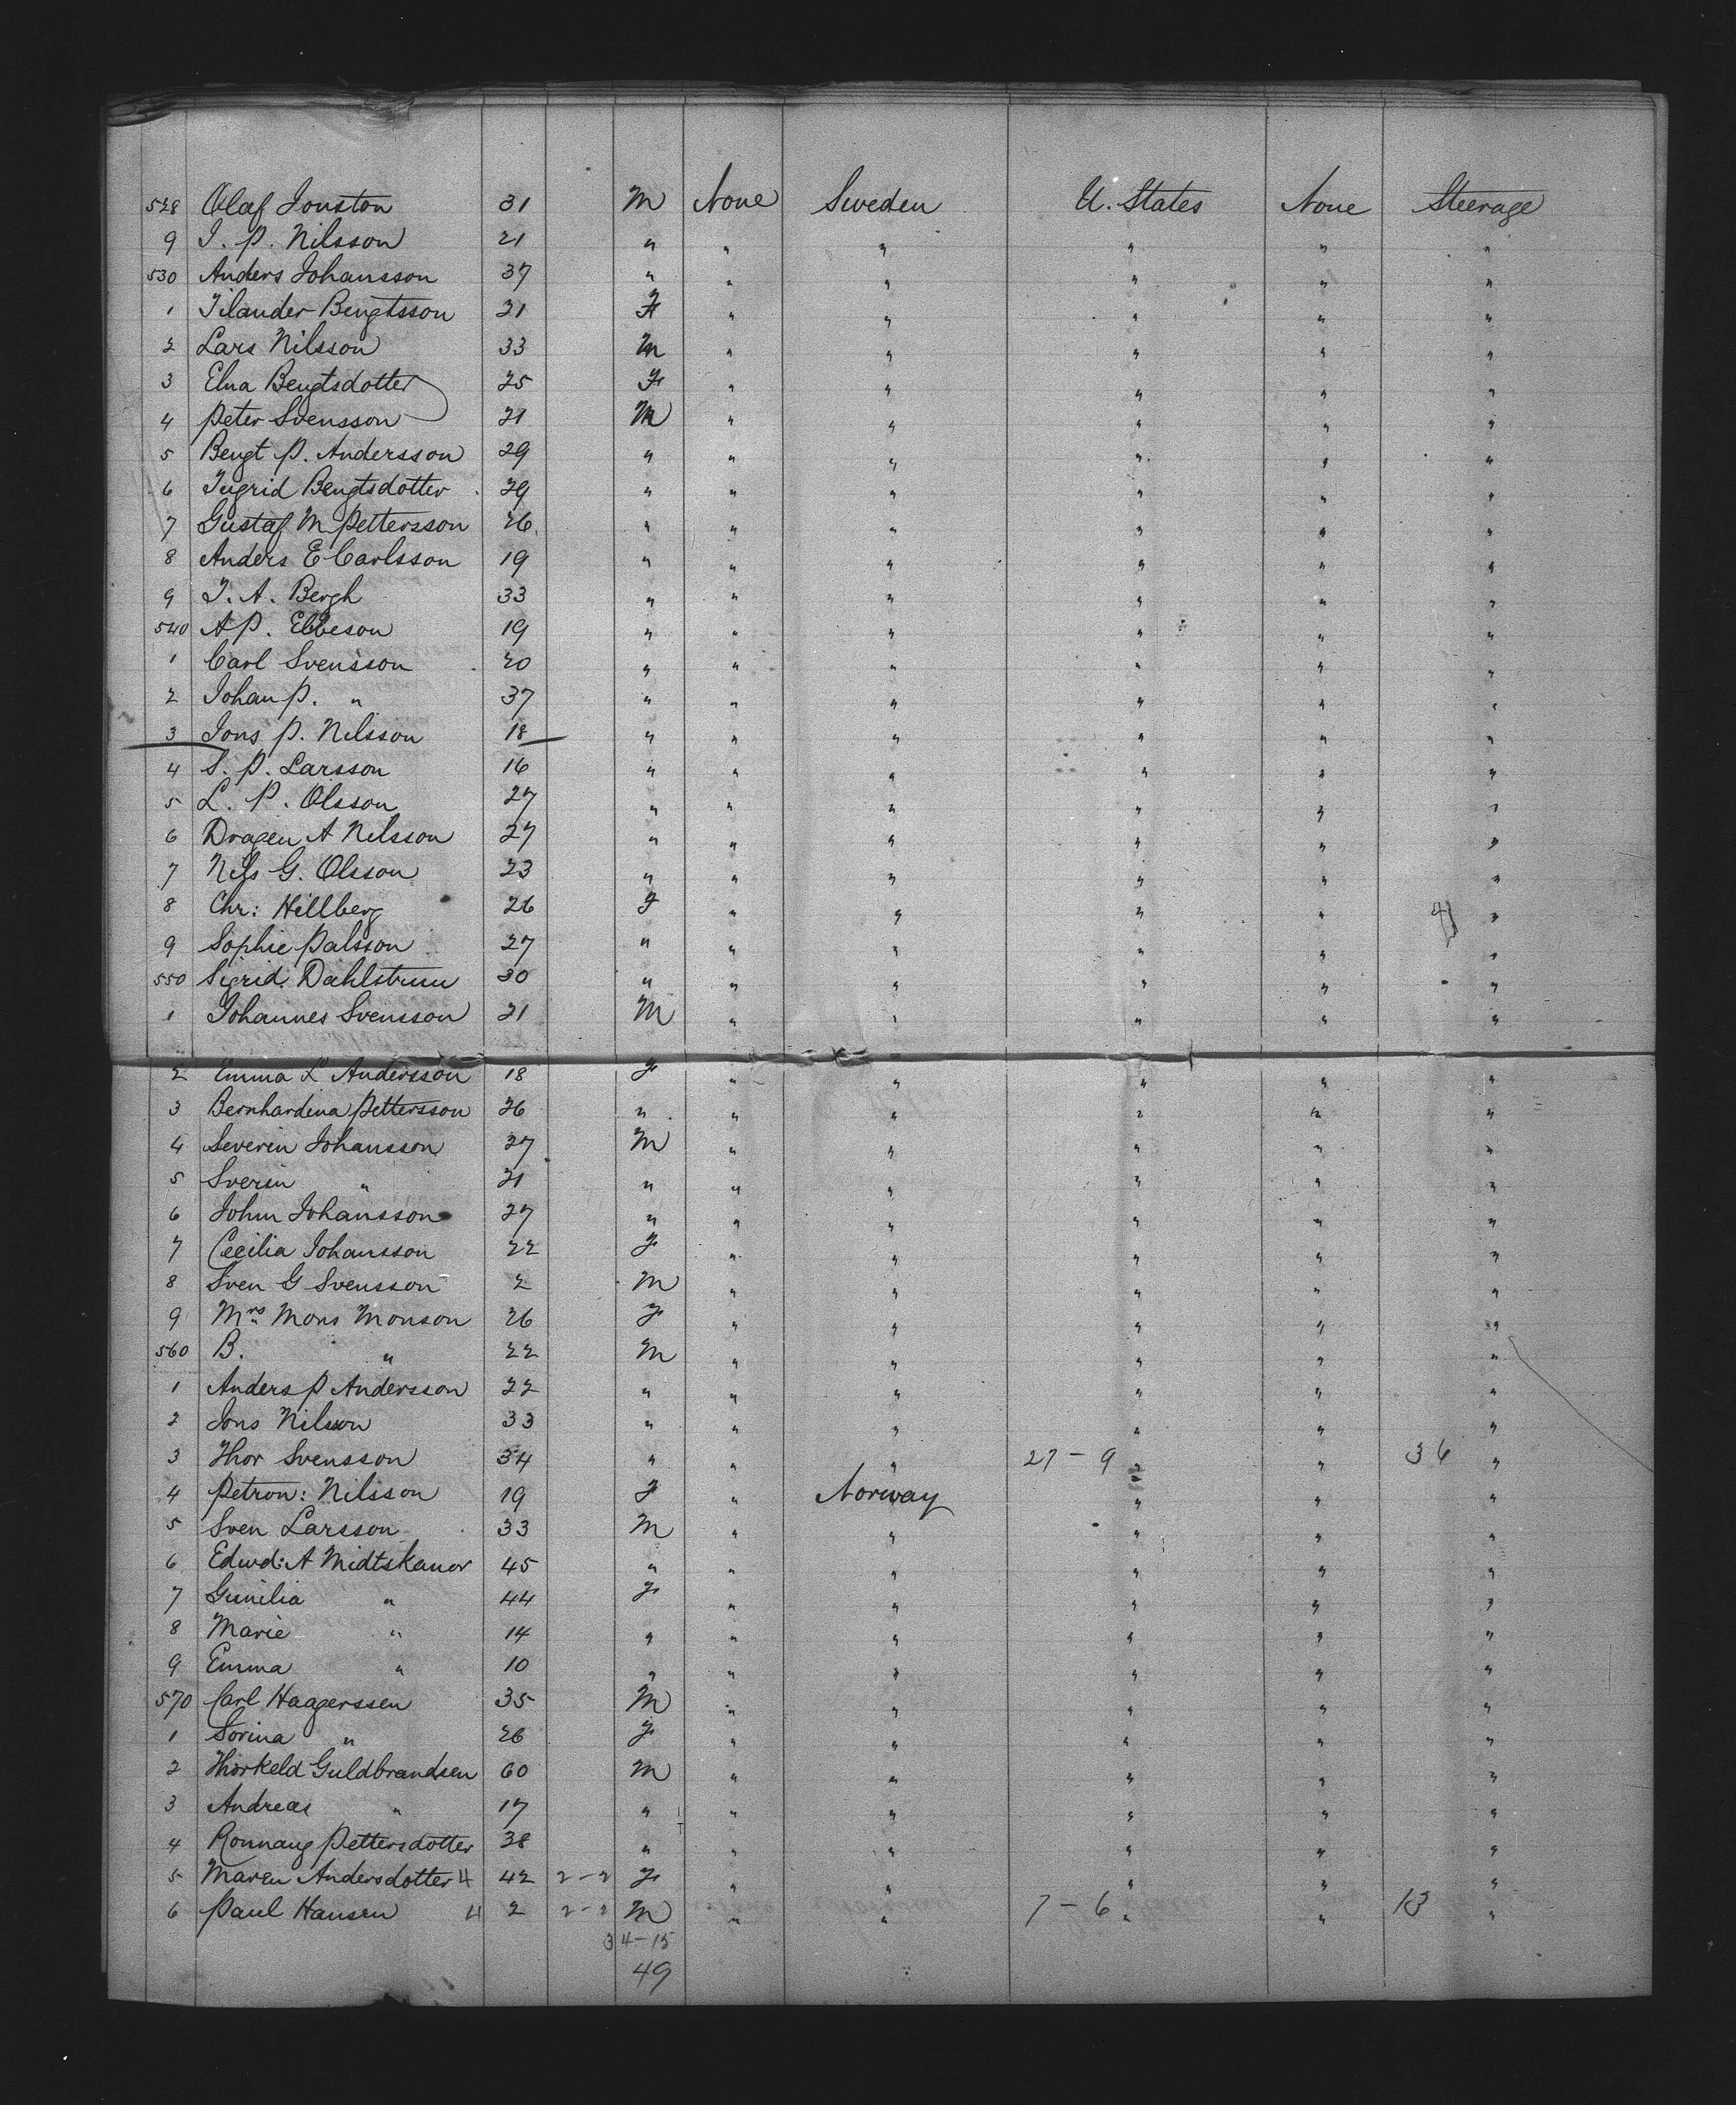 528 Olaf Jonston 31 M None Sweden U. States None Steerage
9 J. P. Nilsson 21 " " " " " "
530 Anders Johansson 37 " " " " " "
1 Tilander Bengtsson 21 F " " " " "
2 Lars Nilsson 33 M " " " " "
3 Elna Bengtsdotter 25 F " " " " "
4 Peter Svensson 21 M " " " " "
5 Bengt P. Andersson 29 " " " " " "
6 Ingrid Bengtsdotter 29 " " " " " "
7 Gustaf M Pettersson 26 " " " " " "
8 Anders E Carlsson 19 " " " " " "
9 J. A. Bergh 33 " " " " " "
540 A P. Ebbeson 19 " " " " " "
1 Carl Svensson 20 " " " " " "
2 Johan P. " 37 " " " " " "
3 Jons P. Nilsson 18 " " " " " "
4 S. P. Larsson 16 " " " " " "
5 L. P. Olsson 27 " " " " " "
6 Dragen A Nilsson 27 " " " " " "
7 Nils G. Olsson 23 " " " " " "
8 Chr: Hillberg 26 F " " " " "
9 Sophie Palsson 27 " " " " " "
550 Sigrid Dahlstrum 30 " " " " " "
1 Johannes Svensson 21 M " " " " "
2 Emma L Andersson 18 F " " " " "
3 Bernhardina Pettersson 26 " " " " " "
4 Severin Johansson 27 M " " " " "
5 Sverin " 21 " " " " " "
6 John Johansson 27 " " " " " "
7 Cecilia Johansson 22 F " " " " "
8 Sven G Svensson 2 M " " " " "
9 Mrs Mons Monson 26 F " " " " "
560 B. " 22 M " " " " "
1 Anders P Andersson 22 " " " " " "
2 Jons Nilsson 33 " " " " " "
3 Thor Svensson 34 " " " 27-9 " " 36 "
4 Petron: Nilsson 19 F " Norway " " "
5 Sven Larsson 33 M " " " " "
6 Edwd: A Midtskanor 45 " " " " " "
7 Gunilia " 44 F " " " " "
8 Marie " 14 " " " " " "
9 Emma " 10 " " " " " "
570 Carl Haagerssen 35 M " " " " "
1 Sorina " 26 F " " " " "
2 Thorkeld Guldbrandsen 60 M " " " " "
3 Andreas " 17 " " " " " "
4 Ronnaug Pettersdotter 38 " " " " " "
5 Maren Andersdotter 4 42 2-2 F " " " " "
6 Paul Hansen 4 2 2-2 M " " 7-6 " " 13 "
34-15
49